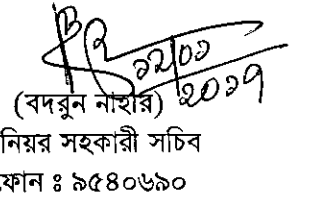 ১২/০১
২০১৭
(বদরুন নাহার)
নিয়র সহকারী সচিব
ফোন ঃ ৯৫৪০৬৯০